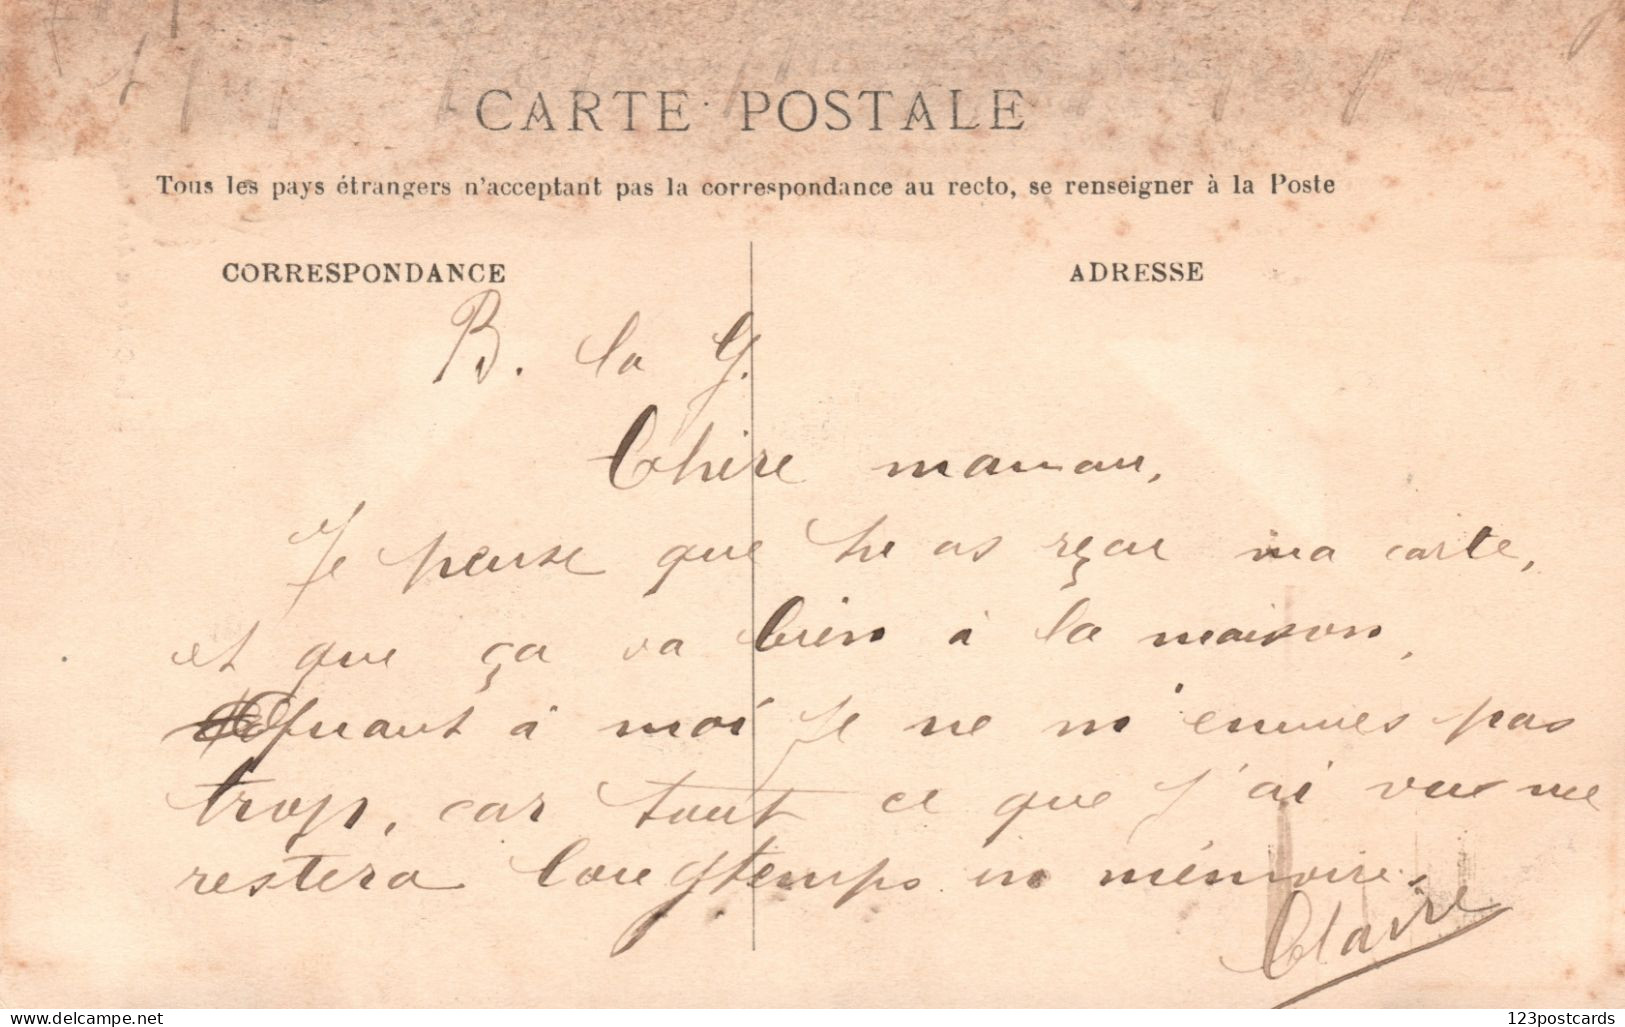 CARTE POSTALE
Tous les pays étrangers n'acceptant pas la correspondance au recto, se renseigner à la Poste
CORRESPONDANCE
ADRESSE
B. la G.
Chère maman,
Je pense que tu as reçu ma carte,
et que ça va bien à la maison,
Quant à moi je ne m'ennuies pas
trop, car tout ce que j'ai vue me
restera longtemps en mémoire.
Claire
delcampe.net
123postcards